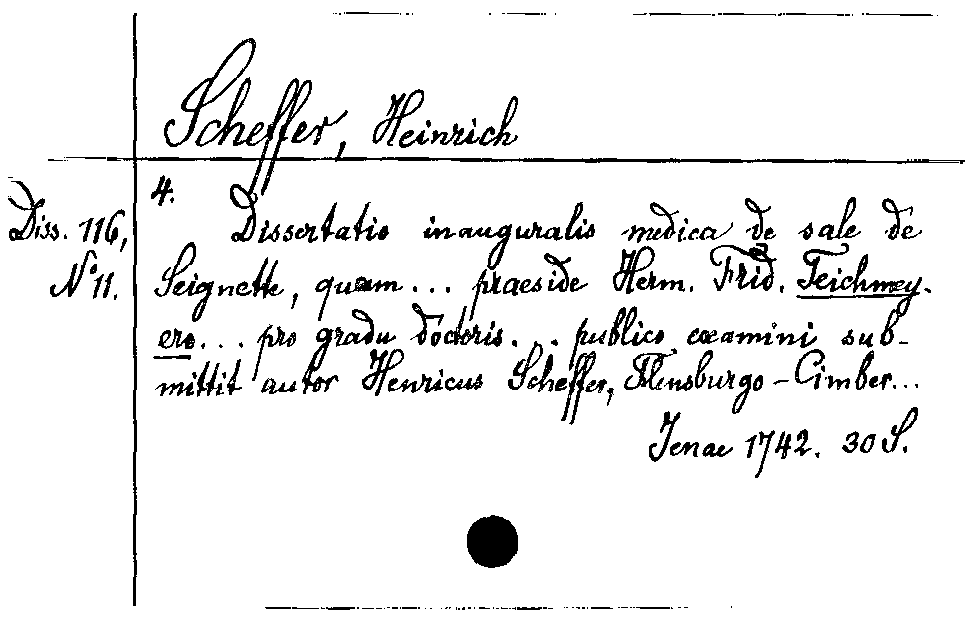 Scheffer, Heinrich
4.
Diss. 116,
No 11.
Dissertatio inauguralis medica de sale de
Seignette, quam... praeside Herm. Frid. Teichmey-
ero... pro gradu doctoris... publico examini sub-
mittit autor Henricus Scheffer, Flensburgo-Cimber...
Jenae 1742. 30 S.